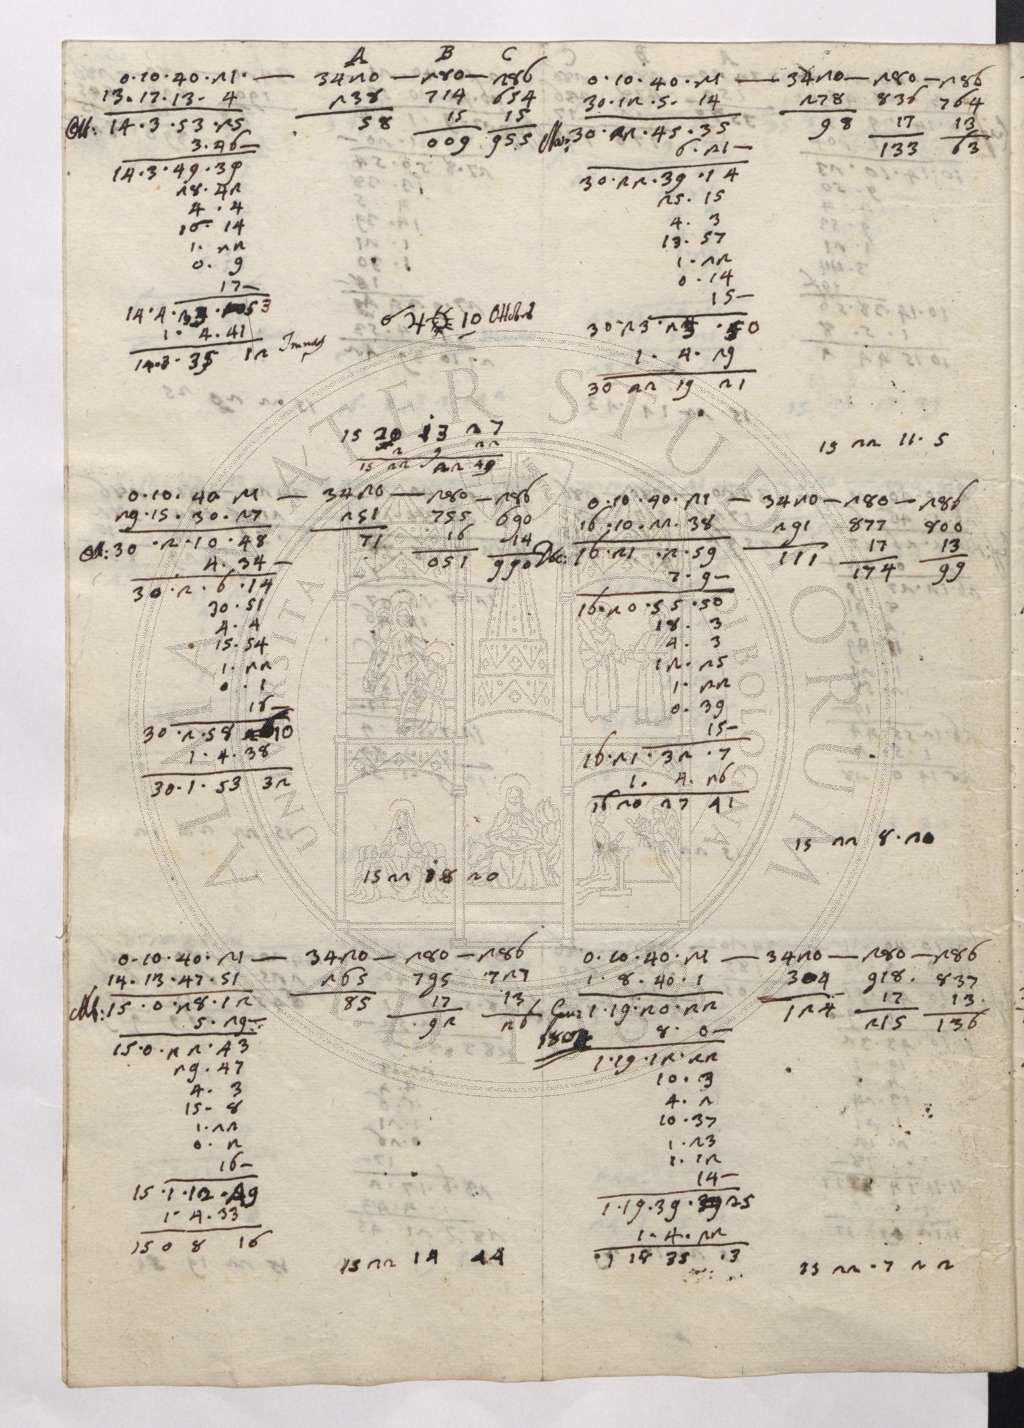 A B C
0.10.40.21. — 3420 — 280 — 286
13.17.13. 4 238 714 654
Ott: 14.3.53.25 58 15 15
3.46— 009 955
14.3.49.39
28.42
4.4
16.14
1.22
0.9
17—
14.4.23 53
1.4.41
14.3.35 12
☌ ♃ ☼ 10 Ottob
15 20 13 27
2 9 22
15 22 22 49
0.10.40.21 — 3420 — 280 — 286
30.12.5.14 278 836 764
30.22.45.35 98 17 13
6.21— 133 63
30.22.39.14
25.15
4.3
13.57
1.22
0.14
15—
30.23.23.50
1.4.29
30 22 19 21
13 22 11.5
0.10.40 21 — 3420 — 280 — 286
29.15.30.27 251 755 690
Ott: 30.2.10.48 71 16 14
4.34— 051 990
30.2.6.14
20.51
4.4
15.54
1.22
0.1
16—
30.2.58 10
1.4.38
30.1.53 32
15 22 18 20
0.10.40.21 — 3420 — 280 — 286
16.10.22.38 291 877 800
Dec: 16.21.2.59 111 17 13
7.9— 174 99
16.20.55.50
18.3
4.3
12.25
1.22
0.39
15—
16.21.32.7
1.4.26
16 20 27 41
13 22 8.20
0.10.40.21 — 3420 — 280 — 286
14.13.47.51 265 795 727
15.0.28.12 85 17 13
5.29— 92 26
15.0.22.43
29.47
4.3
15.8
1.22
0.2
16—
15.1.12.49
1.4.33
15 0 8 16
13 22 14 44
0.10.40.21 — 3420 — 280 — 286
1.8.40.1 304 918. 837
Gen: 1.19.20.22 124 17 13.
8.0— 215 136
1.19.12.22
10.3
4.2
10.37
1.23
1.12
14—
1.19.39.25
1.4.22
1 18 35 .3
13 22.7 22
ALMA MATER STUDIORUM
UNIVERSITÀ DI BOLOGNA